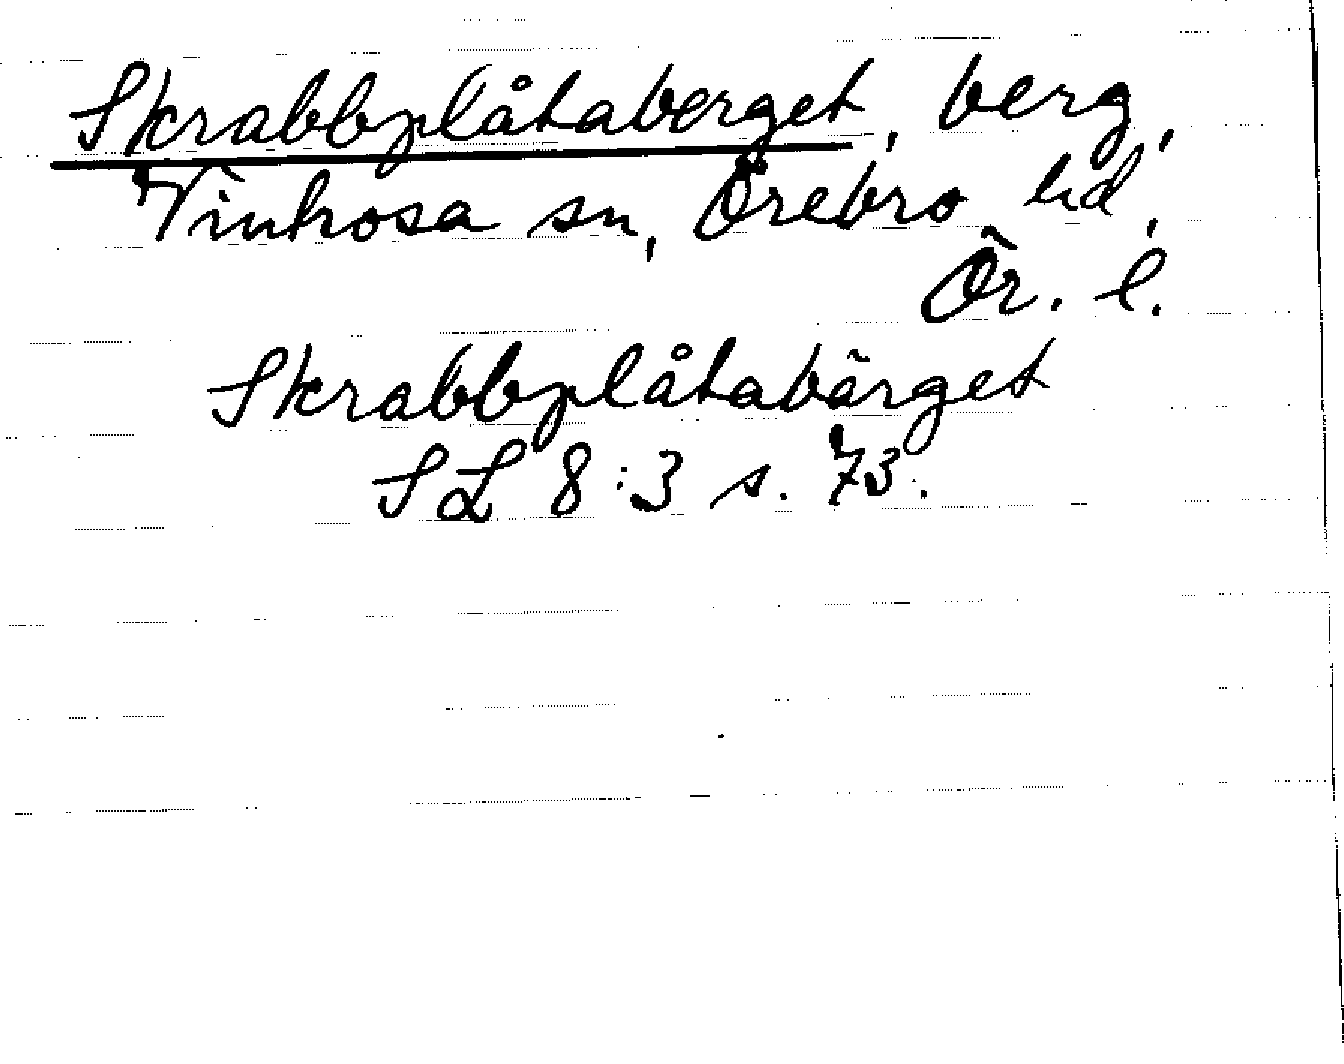 Skrabbplåtaberget, berg,
Vintrosa sn, Örebro hd,
Ör. l.
Skrabbplåtabärget
SL 8:3 s. 73.